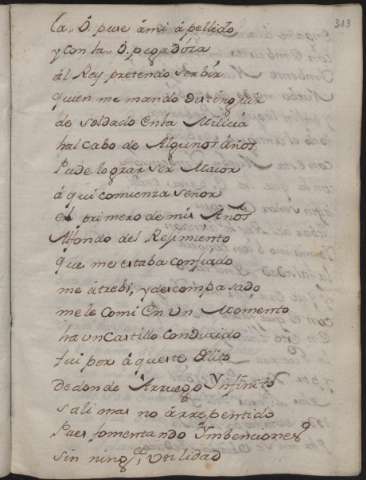 313
la.. D puse á mi ápellido
y con la.. D. pegadóra
ál Rey pretendo serbir
quien me mando distinguir
de soldado en la Milicia
hal cabo de Algunos años
Pude lograr ser Maior
á qui comienza Señor
el primero de mis Años
Alfondo del Rejimiento
que me estaba confiado
me átrebi, y descompasado
me le comi en un Momento
ha un Castillo conducido
fui por áqueste Delito
De donde Arruego Ynfinito
sali mas no árrepentido
Pues fomentando Ymbenciones
sin ning utilidad